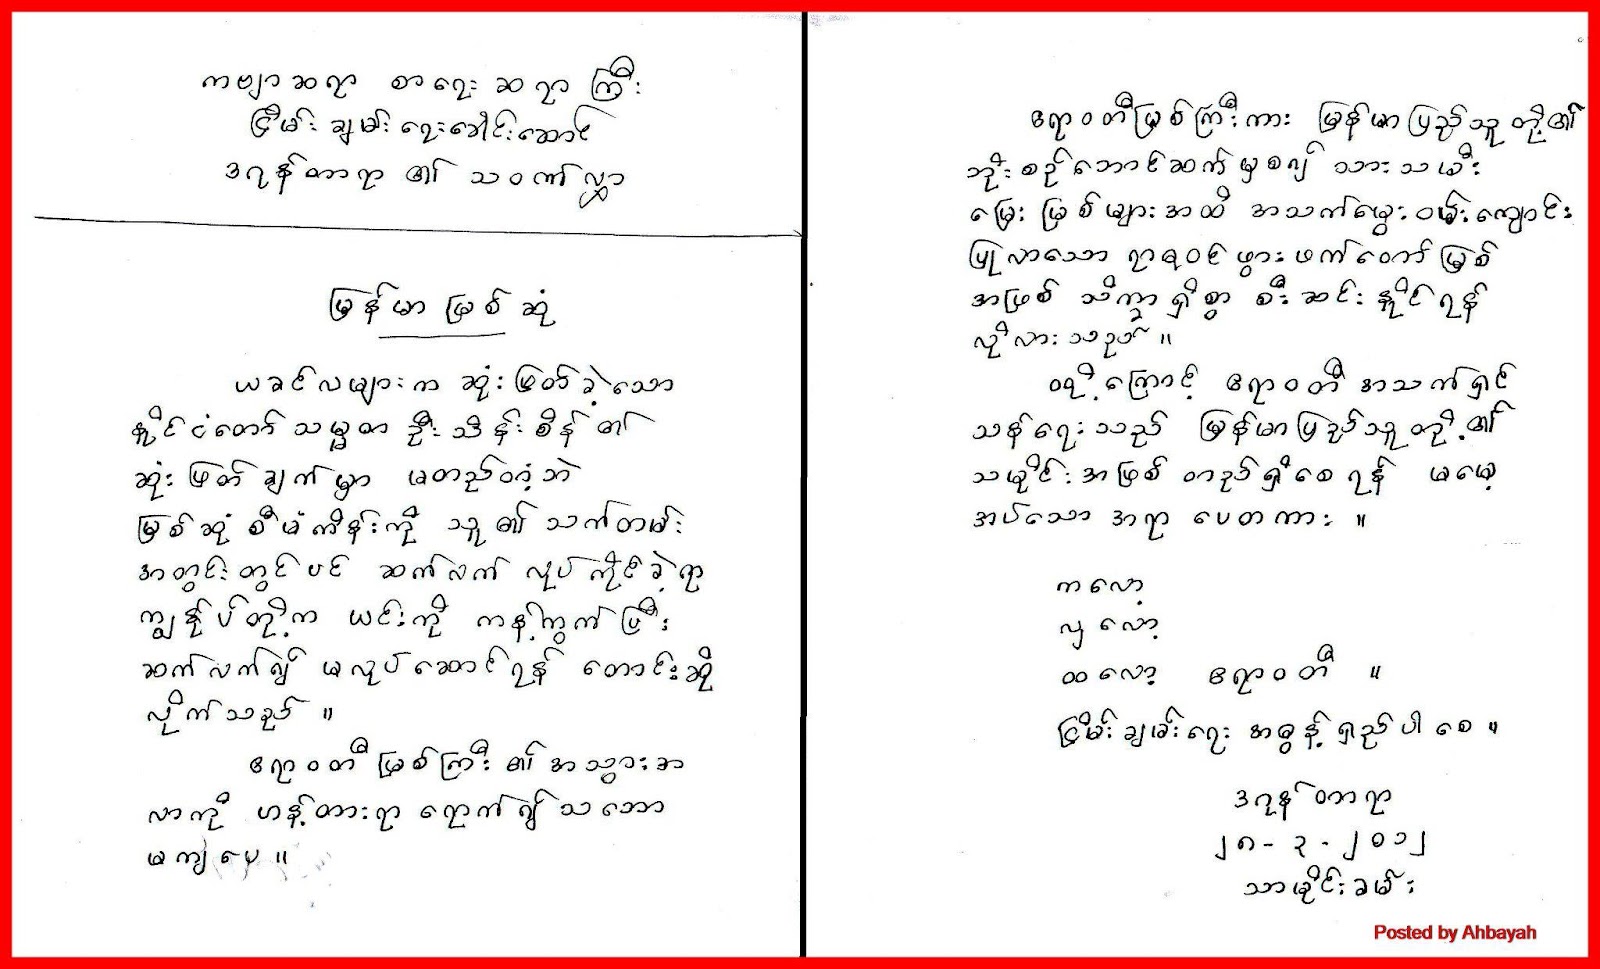 ကဗျာဆရာ စာရေးဆရာကြီး
ငြိမ်းချမ်းရေးခေါင်းဆောင်
ဒဂုန်တာရာ ၏ သဝဏ်လွှာ
မြန်မာမြစ်ဆုံ
ယခင်လများက ဆုံးဖြတ်ခဲ့သော
နိုင်ငံတော်သမ္မတ ဦးသိန်းစိန်၏
ဆုံးဖြတ်ချက်မှာ မတည်တံ့ဘဲ
မြစ်ဆုံစီမံကိန်းကို သူ၏သက်တမ်း
အတွင်းတွင်ပင် ဆက်လက် လုပ်ကိုင်ခဲ့ရာ
ကျွန်ုပ်တို့က ယင်းကို ကန့်ကွက်ပြီး
ဆက်လက်၍ မလုပ်ဆောင်ရန် တောင်းဆို
လိုက်သည်။
ဧရာဝတီမြစ်ကြီး၏ အသွားအ
လာကို ဟန့်တားရာ ရောက်၍ သဘော
မကျပေ။
ဧရာဝတီမြစ်ကြီးကား မြန်မာပြည်သူတို့၏
ဘိုးစဉ်ဘောင်ဆက်မှစ၍ သားသမီး
မြေးမြစ်များအထိ အသက်မွေးဝမ်းကျောင်း
ပြုလာသော ရာဇဝင်ဖွားဖက်တော်မြစ်
အဖြစ် သိက္ခာရှိစွာ စီးဆင်းနိုင်ရန်
လိုလားသည်။
ထို့ကြောင့် ဧရာဝတီအသက်ရှင်
သန်ရေးသည် မြန်မာပြည်သူတို့၏
သမိုင်းအဖြစ် တည်ရှိစေရန် မမေ့
အပ်သော အရာပေတကား။
ကလော့
လှလော့
ထလော့ ဧရာဝတီ။
ငြိမ်းချမ်းရေး အဓွန့်ရှည်ပါစေ။
ဒဂုန်တာရာ
၂၈-၃-၂၀၁၂
သာမိုင်းခမ်း
Posted by Ahbayah